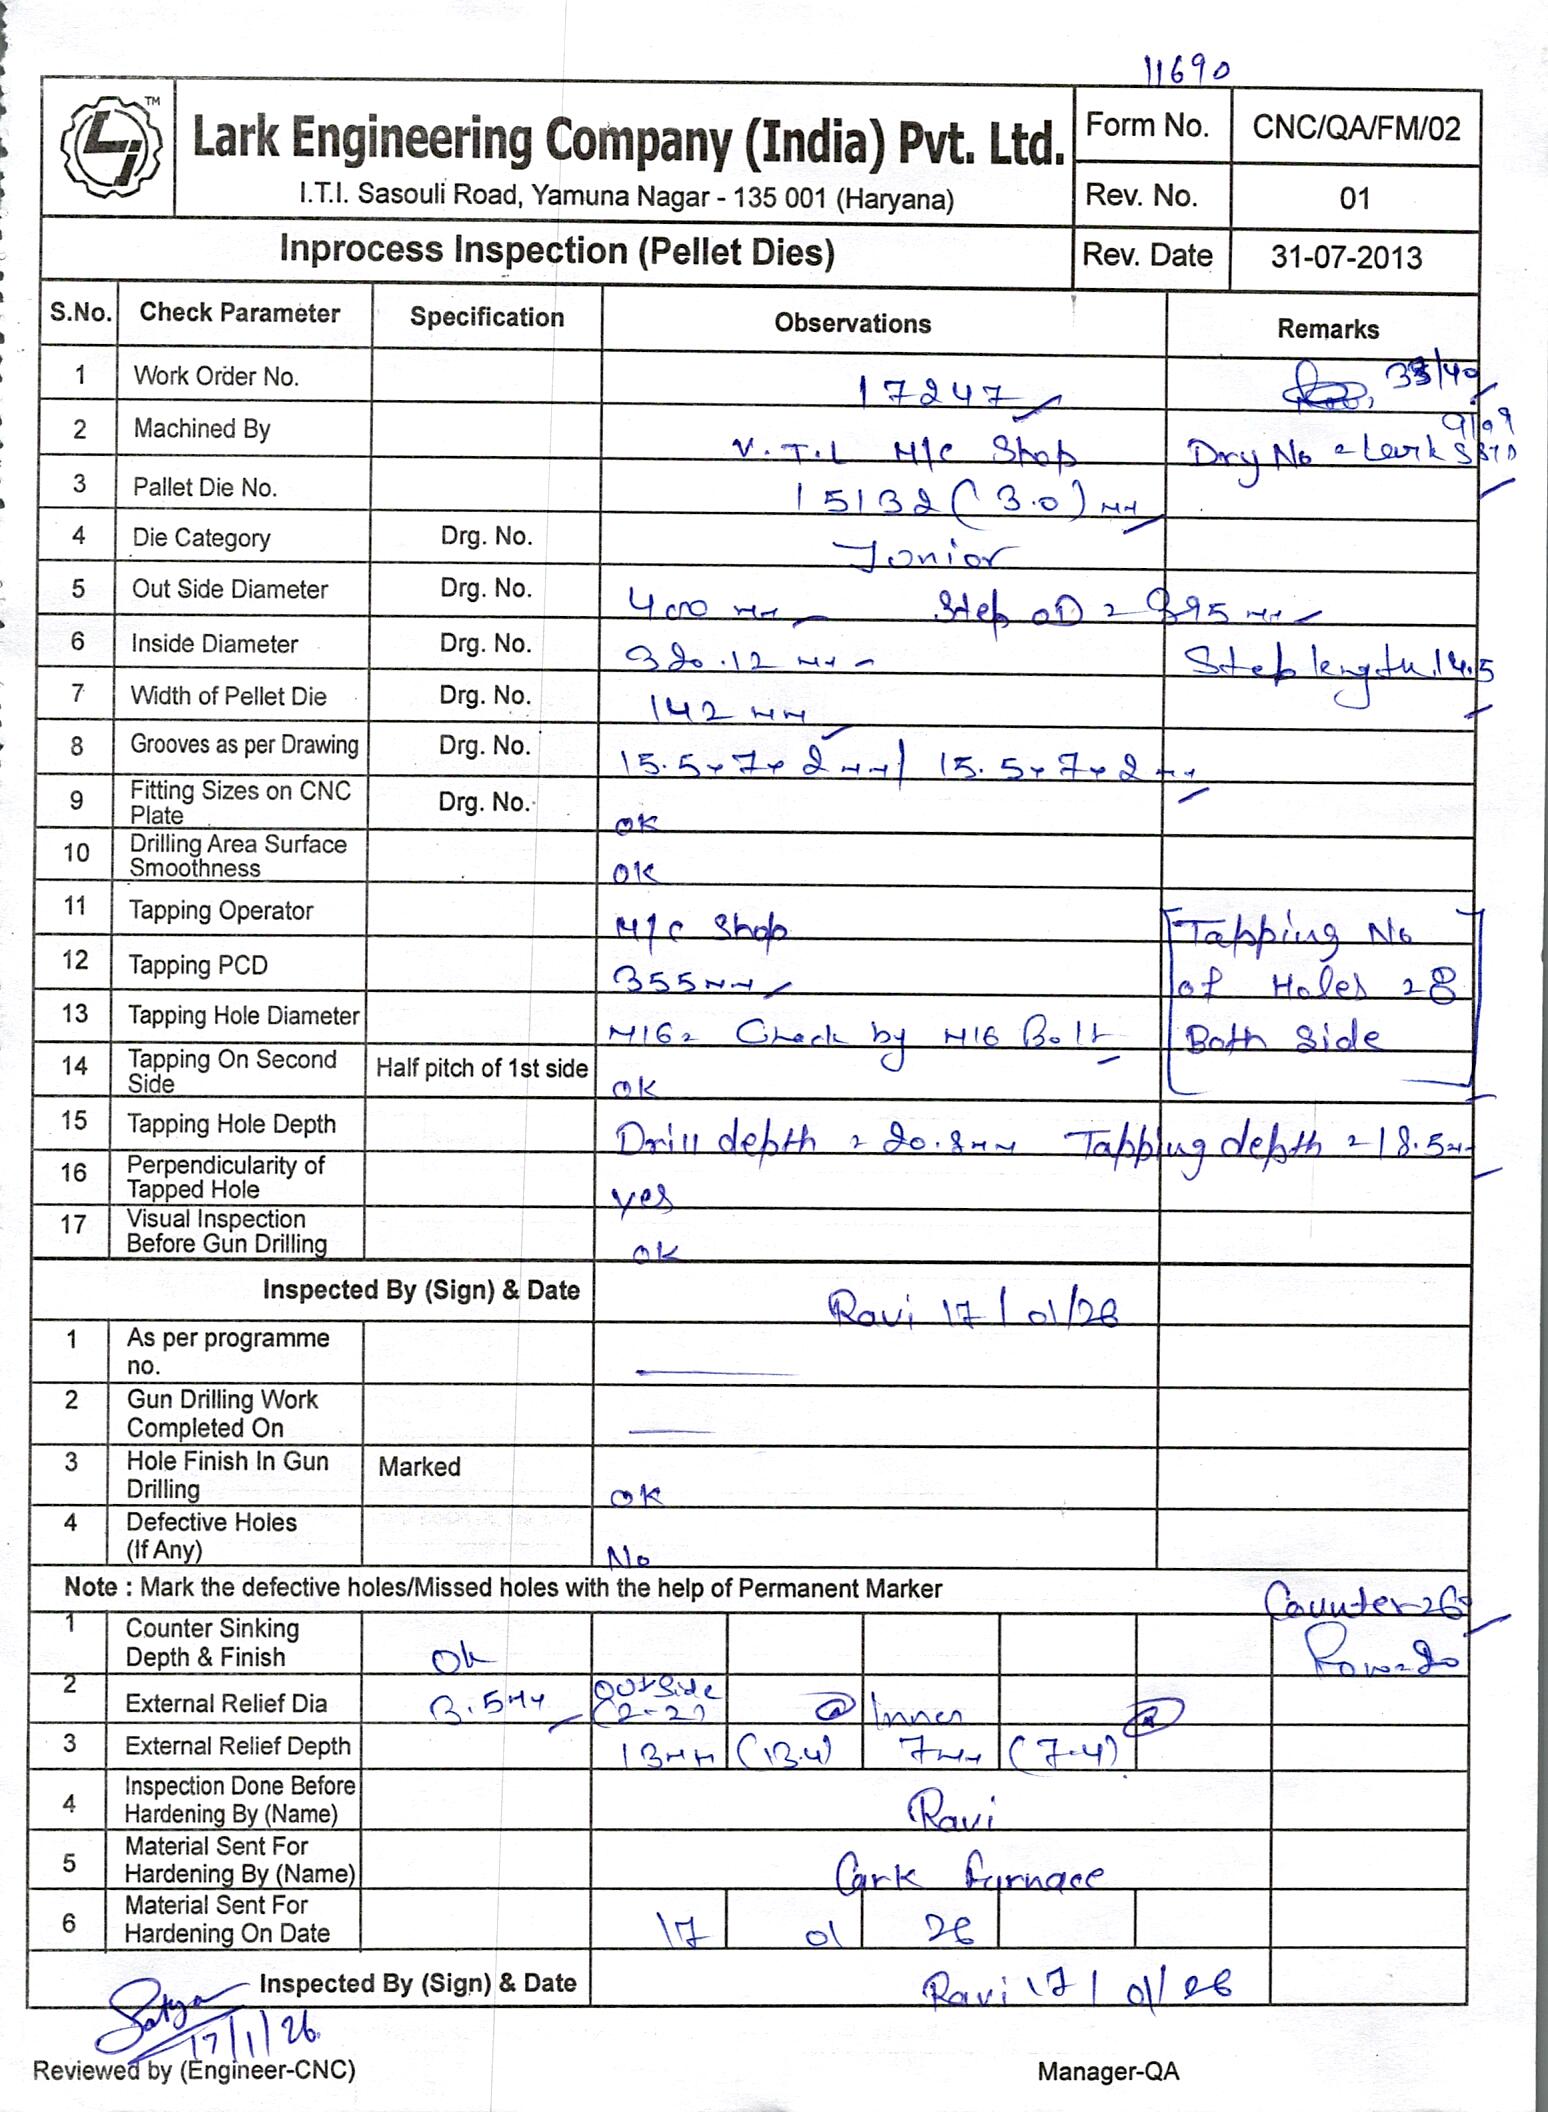 11690
TM
Lark Engineering Company (India) Pvt. Ltd.
I.T.I. Sasouli Road, Yamuna Nagar - 135 001 (Haryana)
Form No. CNC/QA/FM/02
Rev. No. 01
Inprocess Inspection (Pellet Dies)
Rev. Date 31-07-2013
S.No. Check Parameter Specification Observations Remarks
1 Work Order No. 17247
2 Machined By V.T.L M/C Shop Drg No =
3 Pallet Die No. 15132 (3.0) MM
4 Die Category Drg. No. Junior
5 Out Side Diameter Drg. No. 400 MM Step OD = 395 MM
6 Inside Diameter Drg. No. 320.12 MM Step length 14.5
7 Width of Pellet Die Drg. No. 142 MM
8 Grooves as per Drawing Drg. No. 15.5x7x2 MM/ 15.5x7x2 MM
9 Fitting Sizes on CNC Plate Drg. No. OK
10 Drilling Area Surface Smoothness OK
11 Tapping Operator M/C Shop Tapping No
12 Tapping PCD 355 MM of Holes = 8
13 Tapping Hole Diameter M16 = Check by M16 Bolt Both Side
14 Tapping On Second Side Half pitch of 1st side OK
15 Tapping Hole Depth Drill depth = 20.8 MM Tapping depth = 18.5 MM
16 Perpendicularity of Tapped Hole yes
17 Visual Inspection Before Gun Drilling OK
Inspected By (Sign) & Date Ravi 17/01/26
1 As per programme no.
2 Gun Drilling Work Completed On
3 Hole Finish In Gun Drilling Marked OK
4 Defective Holes (If Any) No
Note : Mark the defective holes/Missed holes with the help of Permanent Marker
1 Counter Sinking Depth & Finish Ok
2 External Relief Dia 3.5 MM Outside (2-2) Inner
3 External Relief Depth 13 MM (13.4) 7 MM (7.4)
4 Inspection Done Before Hardening By (Name) Ravi
5 Material Sent For Hardening By (Name) Furnace
6 Material Sent For Hardening On Date 17 01 26
Inspected By (Sign) & Date Ravi 17/01/26
Satya
17/1/26
Reviewed by (Engineer-CNC) Manager-QA